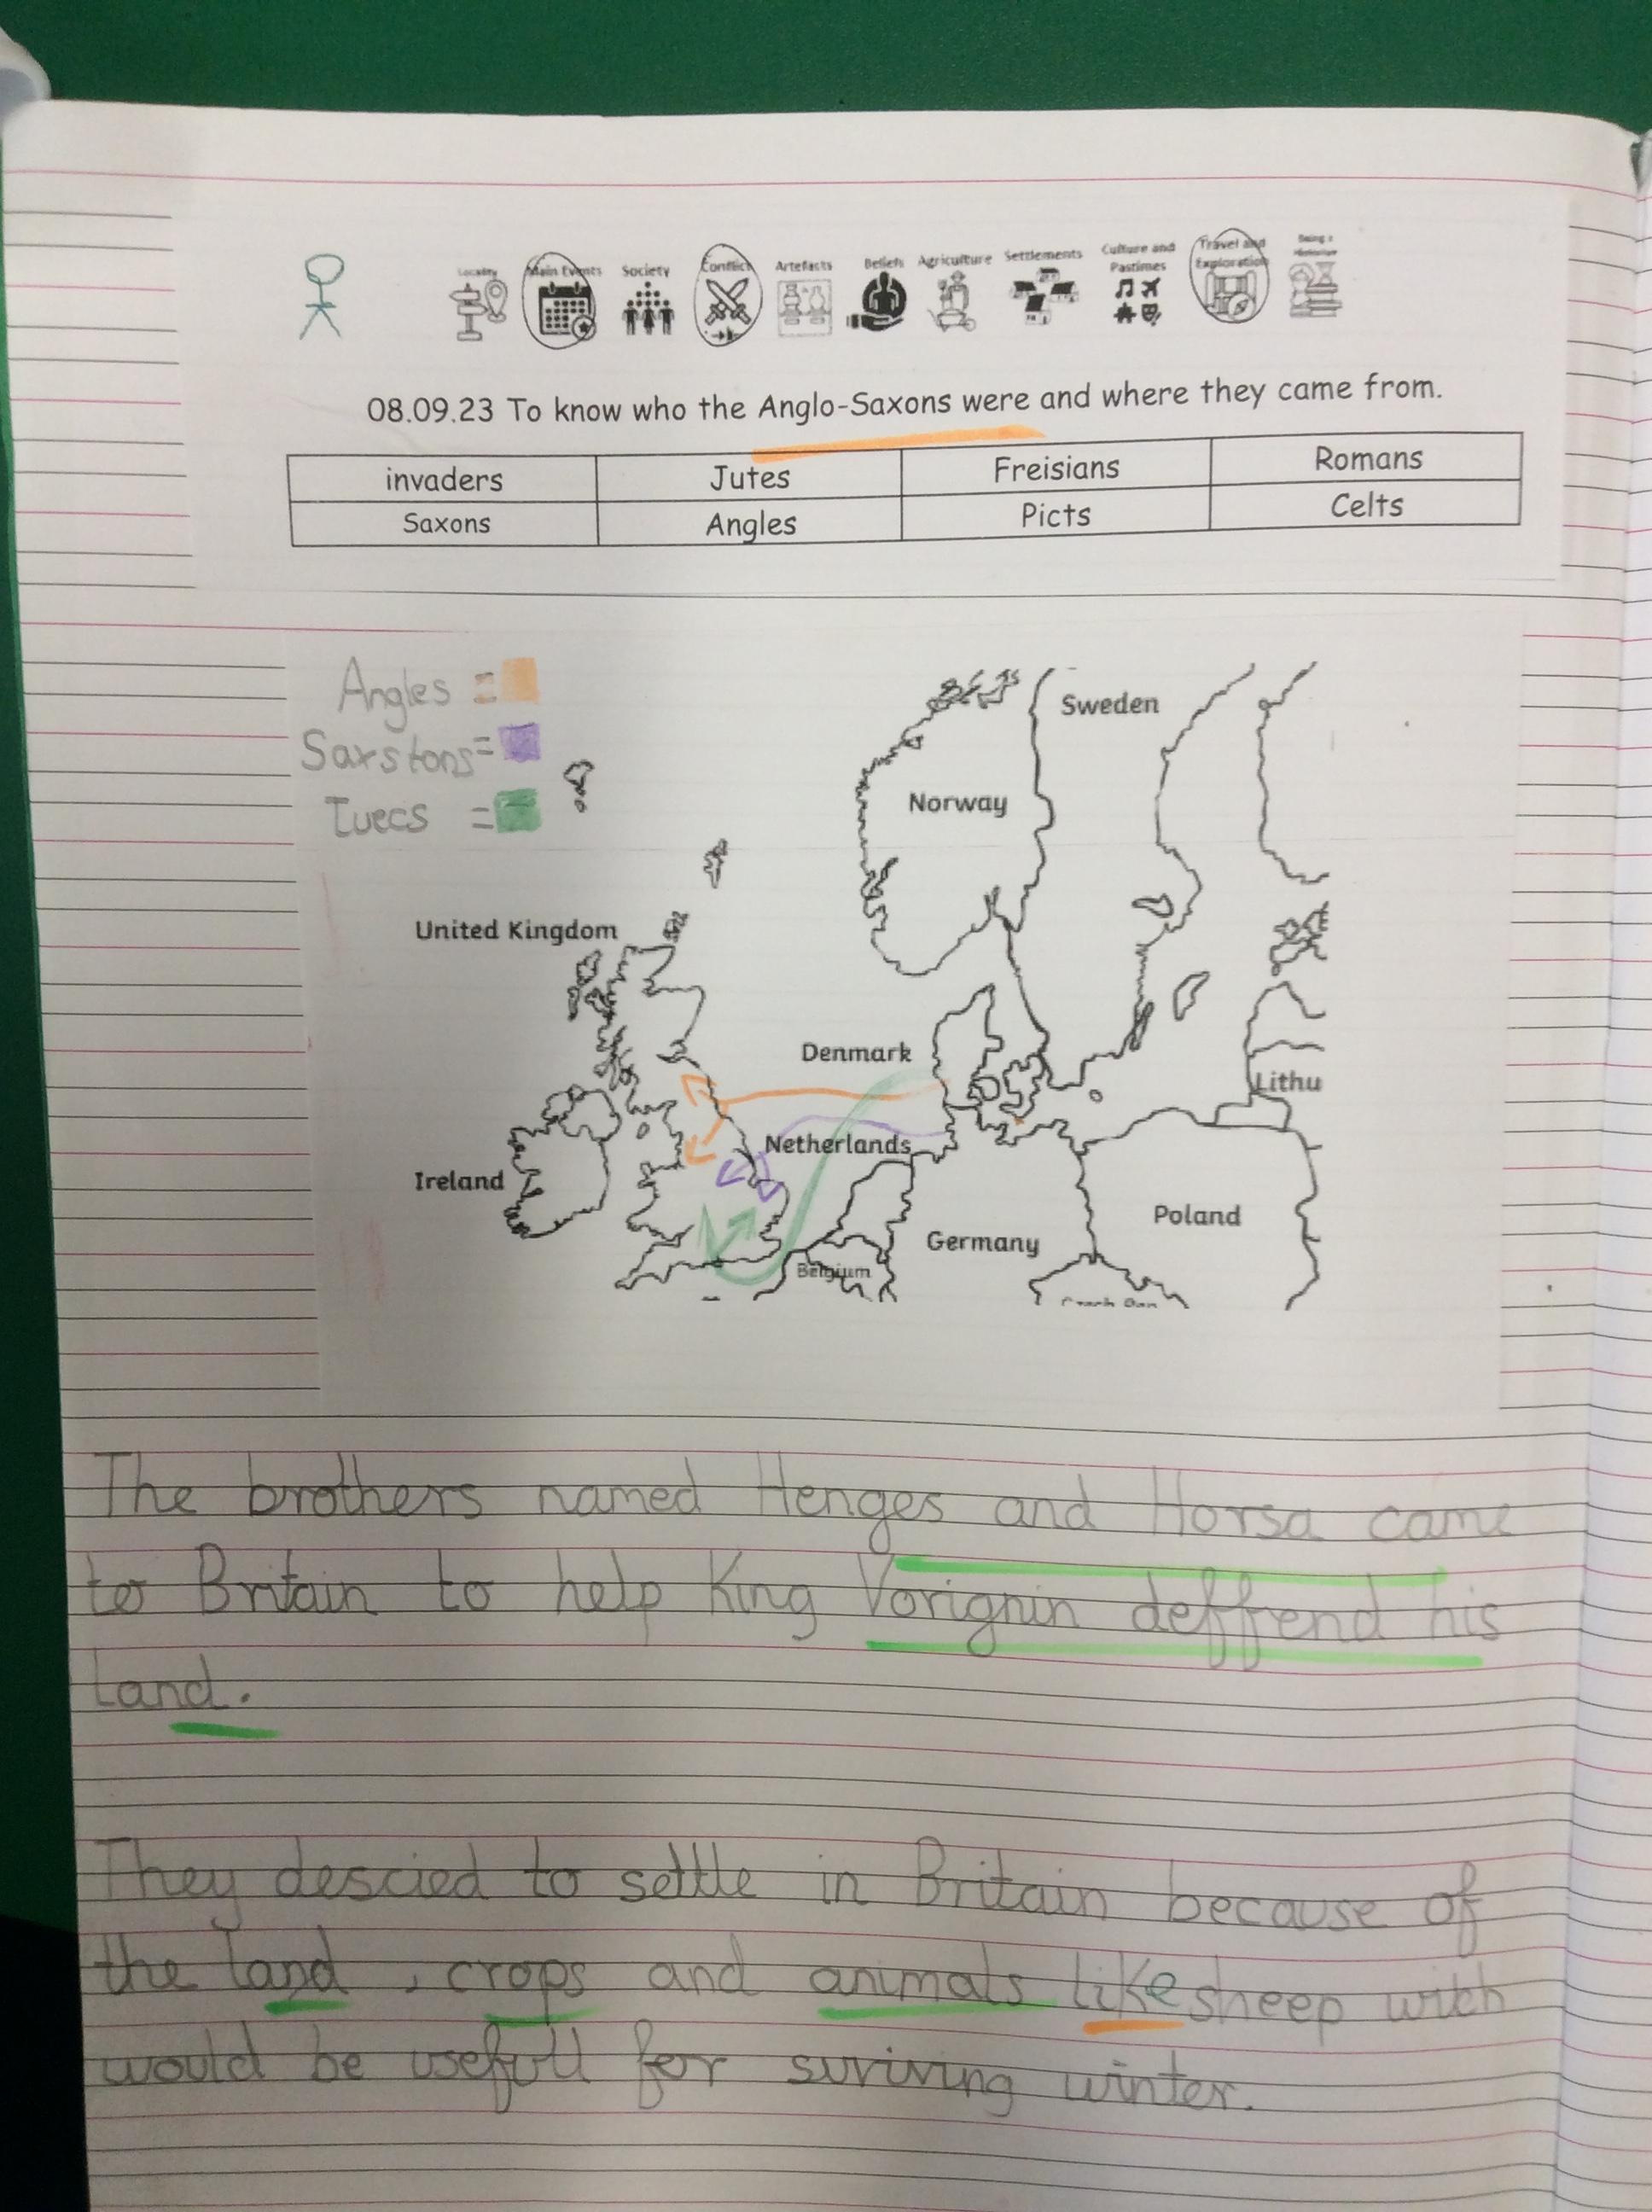 Locality Main Events Society Conflict Artefacts Beliefs Agriculture Settlements Culture and Pastimes Travel and Exploration Being a Historian
08.09.23 To know who the Anglo-Saxons were and where they came from.
invaders Jutes Freisians Romans
Saxons Angles Picts Celts
Angles =
Saxstons=
Tuecs =
Sweden
Norway
United Kingdom
Denmark
Lithu
Netherlands
Ireland
Poland
Germany
Belgium
The brothers named Henges and Horsa came
to Britain to help King Vorignin deffend his
land.
They descied to settle in Britain because of
the land , crops and animals like sheep wich
would be usefull for suriving winter.